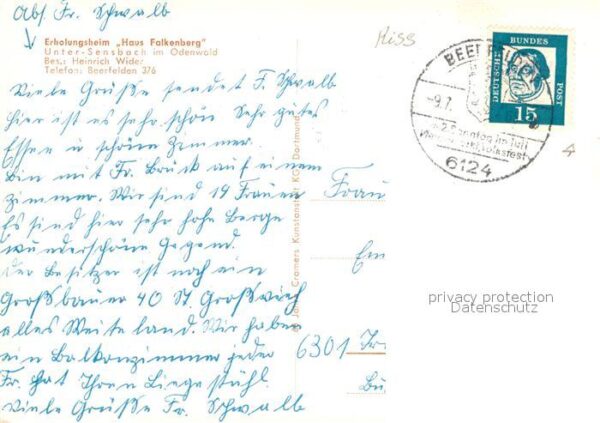 Abs. Fr. Schwalb
Erholungsheim „Haus Falkenberg"
Unter-Sensbach im Odenwald
Bes.: Heinrich Wider
Telefon: Beerfelden 376
Viele Grüße sendet F. Schwalb
hier ist es sehr schön Sehr gutes
Essen u schöne Zimmer.
Bin mit Fr. Bruck auf einem
Zimmer. Wir sind 14 Frauen
Es sind hier sehr hohe Berge
wunderschöne Gegend.
Der Besitzer ist noch ein
Großbauer 40 St. Großvieh
alles Weite land. Wir haben
ein Balkonzimmer jeder
Fr. hat Ihren Liege stühl.
Viele Grüße Fr. Schwalb
Cramers Kunstanstalt KG, Dortmund
Miss
BEERFELDEN
-9.7.
2. Sonntag im Juli
6124
DEUTSCHE BUNDESPOST
15
4
Frau
6301
privacy protection
Datenschutz